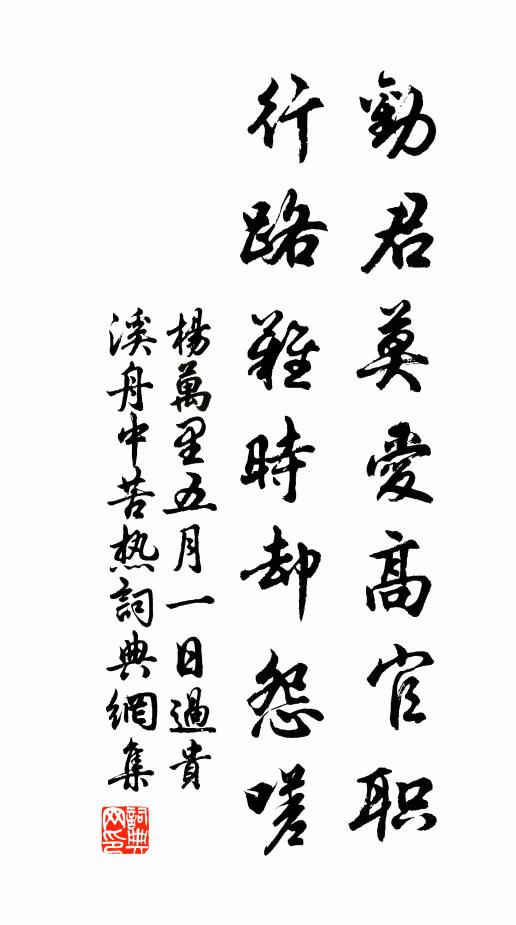 勸君莫愛高官职
行路難時却怨嗟
楊萬里五月一日過貴
溪舟中苦热詞典網集
詞典网印